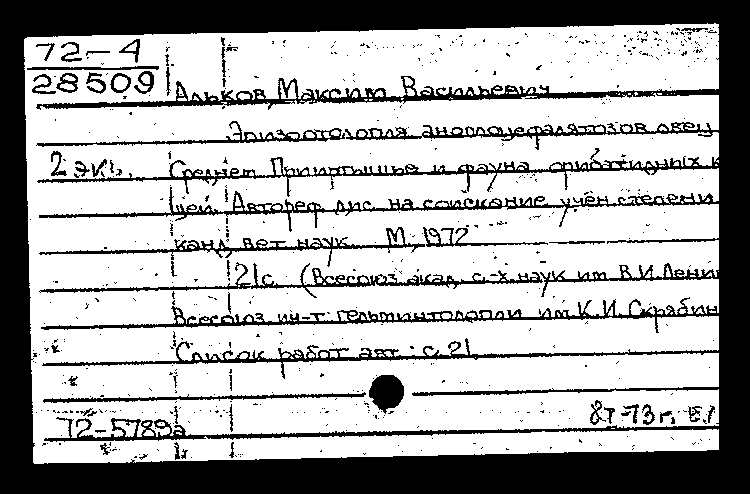 72-4
28509
Альков, Максим Васильевич
Эпизоотология аноплоцефалятозов овец
2 экз. Среднем Прииртышье и фауна орибатидных к
щей. Автореф. дис. на соискание учён. степени
канд. вет. наук. М., 1972
21 с. (Всесоюз. акад. с.-х. наук им. В.И. Лени
Всесоюз. ин-т гельминтологии им. К.И. Скрябин
Список работ авт.: с. 21
72-5789а 8т-73г.